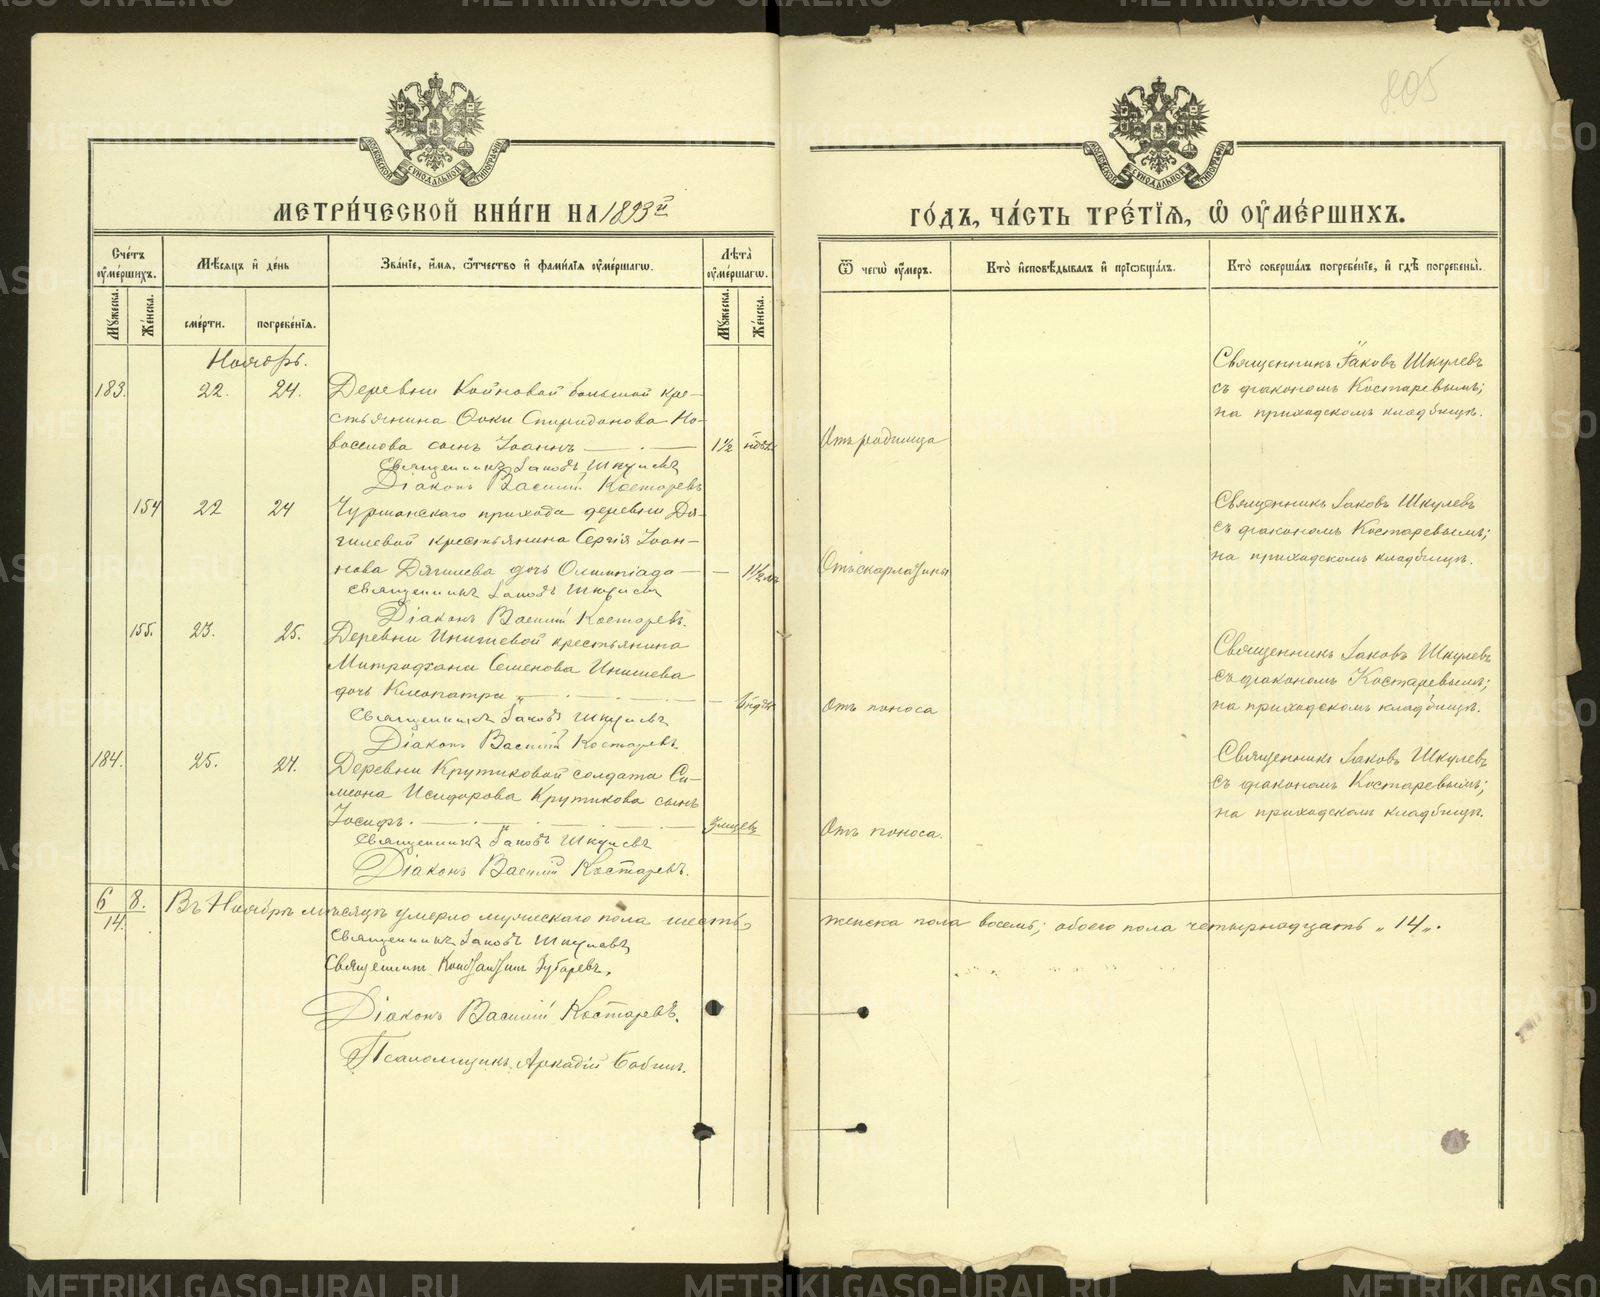 МЕТРИ́ЧЕСКОЙ КНИ́ГИ НА 1893й
ГО́ДЪ, ЧА́СТЬ ТРЕ́ТІѦ, Ѿ ОУМЕ́РШИХЪ.
805
Сче́тъ оумершихъ.
Мѣсѧцъ и де́нь
Зва́ніе, и́мѧ, ѻтчество и фами́ліѧ оуме́ршагѡ.
Лѣта̀ оуме́ршагѡ.
Мꙋ́жеска.
Же́нска.
сме́рти.
погребе́ніѧ.
Мꙋ́жеска.
Же́нска.
Ѿ чегѡ̀ оу́меръ.
Кто̀ исповѣ́дывалъ и пріѡбща́лъ.
Кто̀ соверша́лъ погребе́ніе, и гдѣ̀ погребены̀.
Ноябрь.
183. 22. 24. Деревни Койновой большой кре-
стьянина Фоки Спиридонова Но-
воселова сынъ Іоаннъ 1½
Священникъ Іаковъ Шкулевъ
Діаконъ Василій Костаревъ
Отъ родимца
Священникъ Іаковъ Шкулевъ
съ діакономъ Костаревымъ;
на приходскомъ кладбищѣ.
154 22 24 Чурманскаго прихода деревни Дя-
гилевой крестьянина Сергія Іоан-
нова Дягилева дочь Олимпіада — 1½
Священникъ Іаковъ Шкулевъ
Діаконъ Василій Костаревъ.
Отъ скарлатины
Священникъ Іаковъ Шкулевъ
съ діакономъ Костаревымъ;
на приходскомъ кладбищѣ.
155. 23. 25. Деревни Инишевой крестьянина
Митрофана Семенова Инишева
дочь Клеопатра
Священникъ Іаковъ Шкулевъ
Діаконъ Василій Костаревъ.
Отъ поноса
Священникъ Іаковъ Шкулевъ
съ діакономъ Костаревымъ;
на приходскомъ кладбищѣ.
184. 25. 27. Деревни Крутиковой солдата Си-
меона Исидорова Крутикова сынъ
Іосифъ.
Священникъ Іаковъ Шкулевъ
Діаконъ Василій Костаревъ.
Отъ поноса.
Священникъ Іаковъ Шкулевъ
съ діакономъ Костаревымъ;
на приходскомъ кладбищѣ.
6 8.
14.
Въ Ноябрѣ мѣсяцѣ умерло мужескаго пола шесть, женска пола восемь; обоего пола четырнадцать „14„.
Священникъ Іаковъ Шкулевъ
Священникъ Константинъ Зубаревъ.
Діаконъ Василій Костаревъ.
Псаломщикъ Аркадій Бабинъ.
METRIKI.GASO-URAL.RU